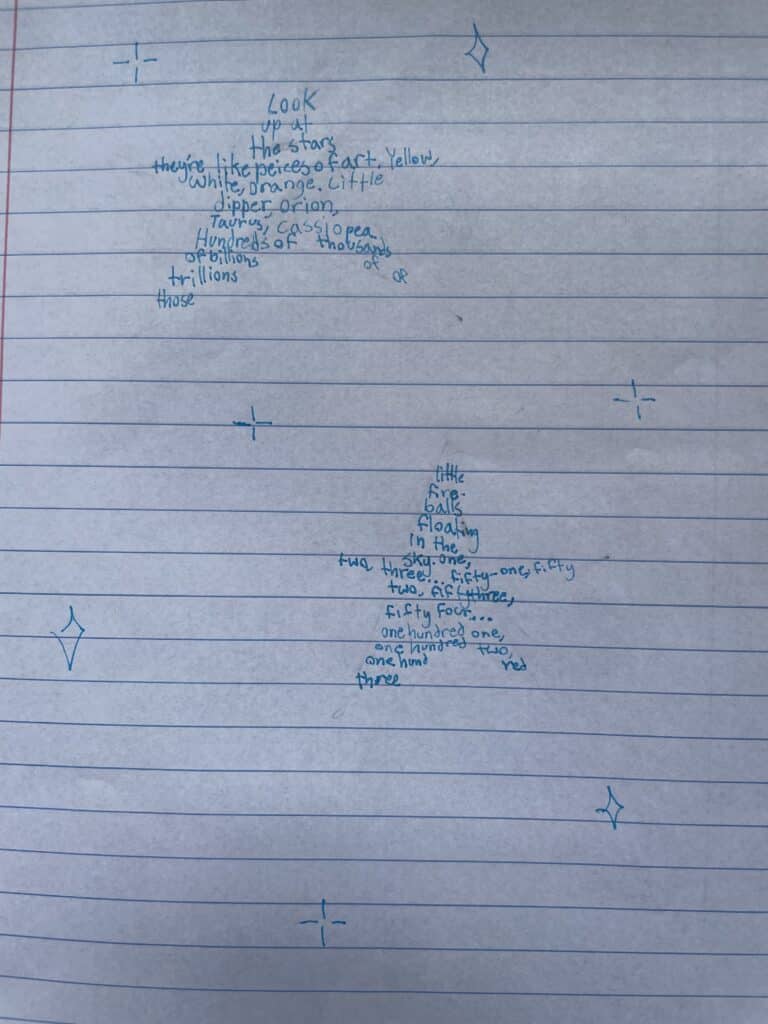 Look
up at
the stars
they're like peices of art. Yellow,
White, orange. Little
dipper, orion,
Taurus, cassiopea.
Hundreds of thousands
of billions of
trillions of
those
little
fire-
balls
floating
in the
sky. one,
two, three... fifty-one, fifty
two, fifty three,
fifty four...
one hundred one,
one hundred two,
one hund red
three